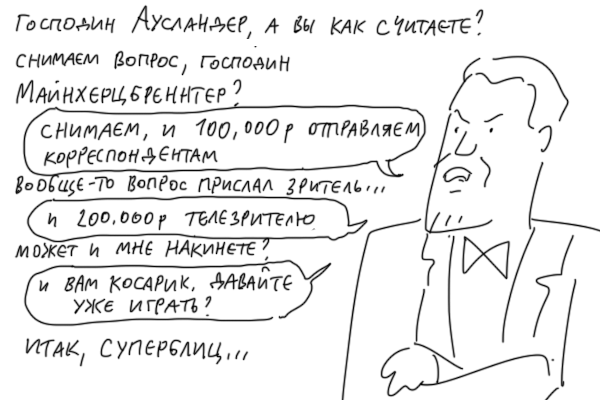 Господин Аусландер, а вы как считаете?
снимаем вопрос, господин
Майнхерцбреннтер?
снимаем, и 100,000р отправляем
корреспондентам
вообще-то вопрос прислал зритель...
и 200.000р телезрителю.
может и мне накинете?
и вам косарик, давайте
уже играть?
итак, суперблиц...